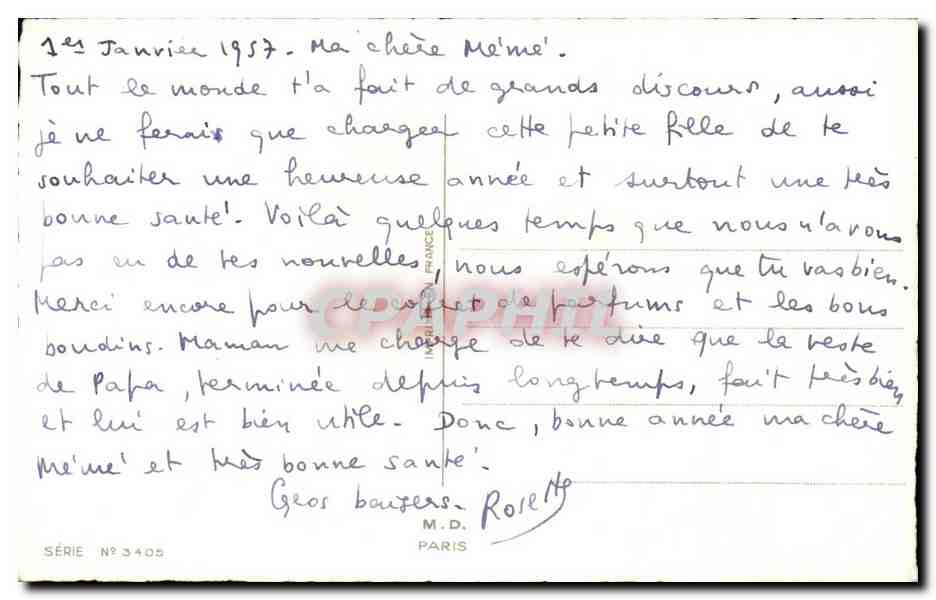 1er Janvier 1957. Ma chère Mémé.
Tout le monde t'a fait de grands discours, aussi
je ne ferais que charger cette petite fille de te
souhaiter une heureuse année et surtout une très
bonne santé. Voilà quelques temps que nous n'avons
pas eu de tes nouvelles, nous espérons que tu vas bien.
Merci encore pour le coffret de parfums et les bons
boudins. Maman me charge de te dire que la veste
de Papa, terminée depuis longtemps, fait très bien
et lui est bien utile. Donc, bonne année ma chère
Mémé et très bonne santé.
Gros baisers. Rosette
IMPRIMÉ EN FRANCE
CPAPHIL
M.D.
PARIS
SÉRIE Nº 3405